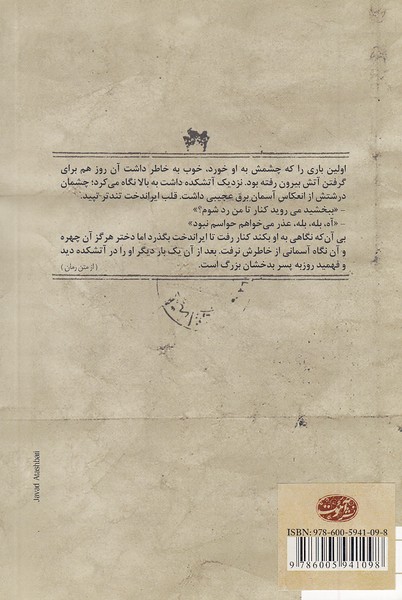 اولین باری را که چشمش به او خورد، خوب به خاطر داشت آن روز هم برای
گرفتن آتش بیرون رفته بود. نزدیک آتشکده داشت به بالا نگاه می‌کرد؛ چشمان
درشتش از انعکاس آسمان برق عجیبی داشت. قلب ایراندخت تندتر تپید.
«ببخشید می روید کنار تا من رد شوم؟»
- «آه، بله، بله، عذر می‌خواهم حواسم نبود»
بی آن‌که نگاهی به او بکند کنار رفت تا ایراندخت بگذرد اما دختر هرگز آن چهره
و آن نگاه آسمانی از خاطرش نرفت. بعد از آن یک بار دیگر او را در آتشکده دید
و فهمید روزبه پسر بدخشان بزرگ است.
(از متن رمان)
Javad Atashbari
نشر آموت
ISBN: 978-600-5941-09-8
9 786005 941098